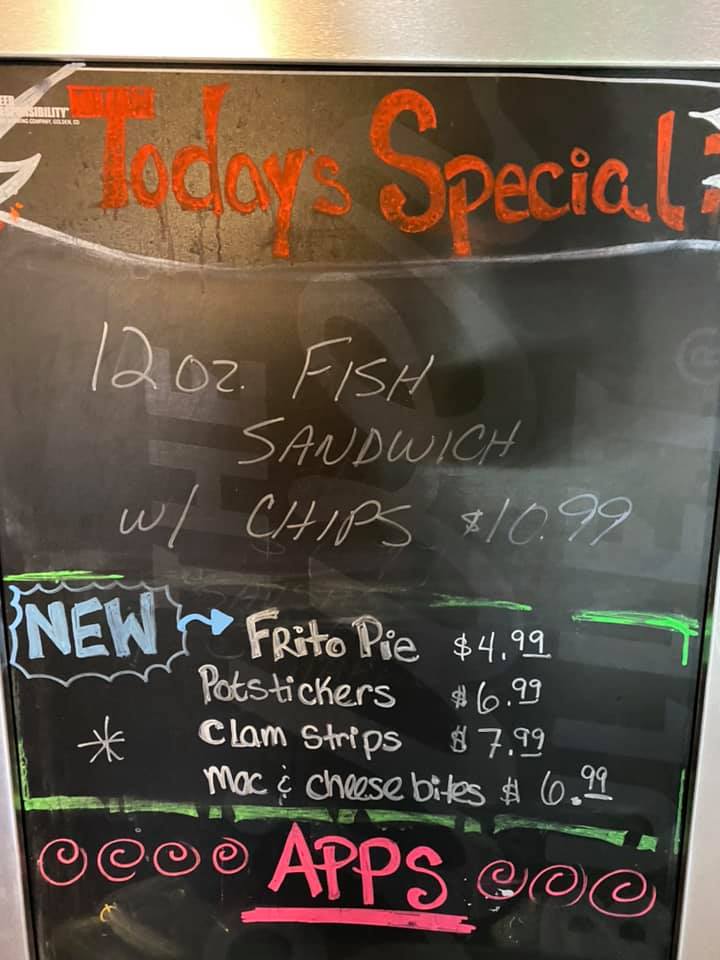 Today's Special
12 oz. FISH
SANDWICH
w/ CHIPS $10.99
NEW → Frito Pie $4.99
Potstickers $6.99
* Clam Strips $7.99
Mac & cheese bites $6.99
APPS